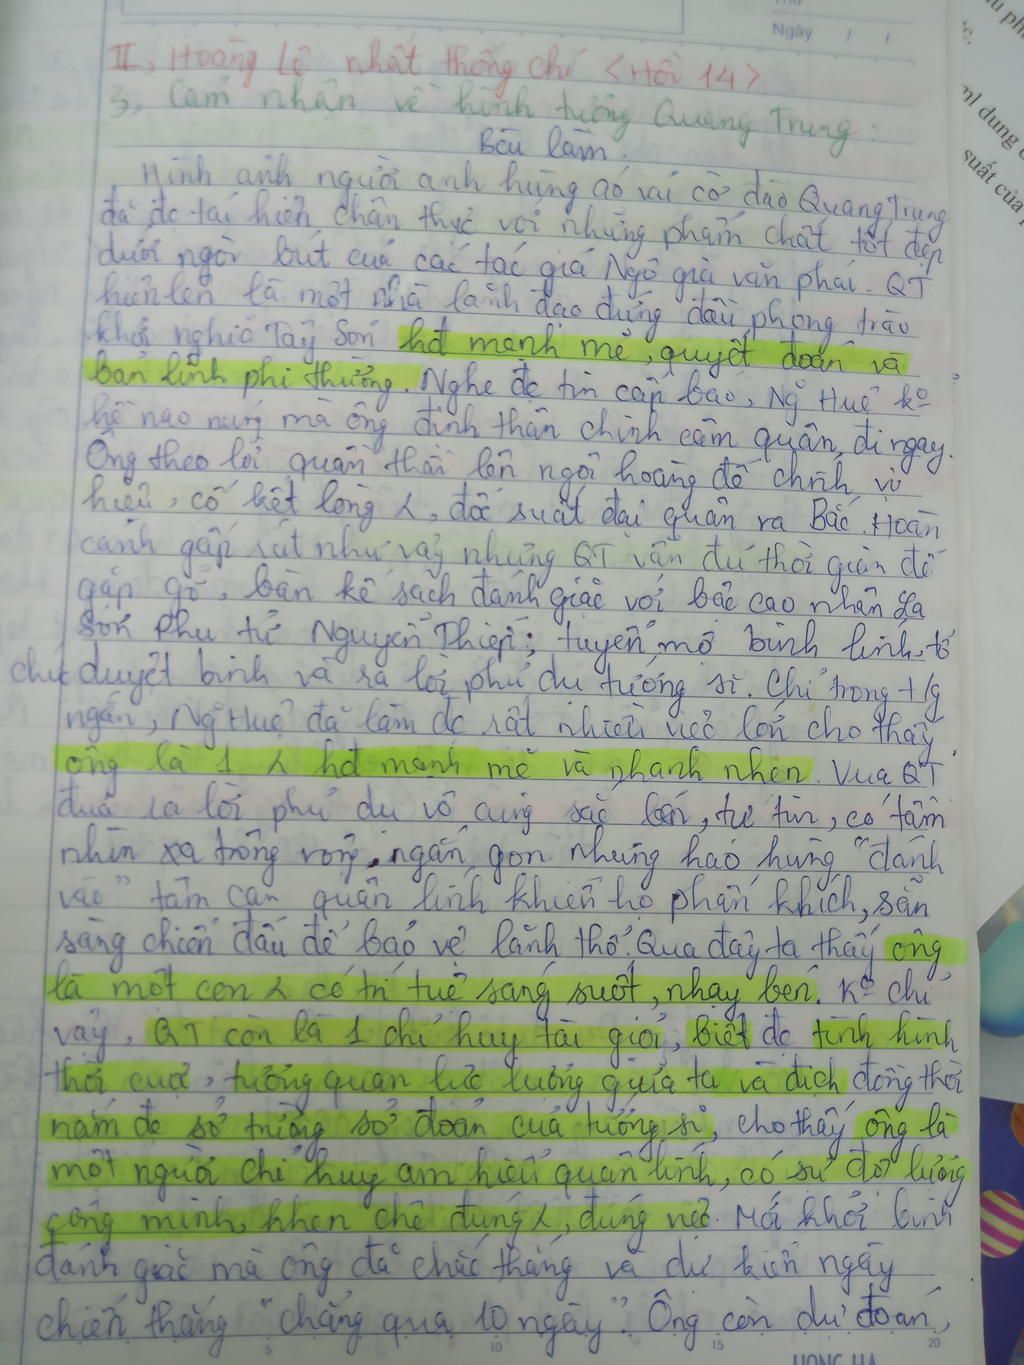 Ngày / /
II, Hoàng Lê nhất thống chí <Hồi 14>
3, Cảm nhận về hình tượng Quang Trung:
Bài làm:
Hình ảnh người anh hùng áo vải cờ đào Quang Trung
đã đc tái hiện chân thực với những phẩm chất tốt đẹp
dưới ngòi bút của các tác giả Ngô gia văn phái. QT
hiện lên là một nhà lãnh đạo đứng đầu phong trào
khởi nghĩa Tây Sơn hđ mạnh mẽ, quyết đoán và
bản lĩnh phi thường. Nghe đc tin cấp báo, Ng Huệ ko
hề nao núng mà ông định thân chinh cầm quân đi ngay.
Ông theo lời quần thần lên ngôi hoàng đế chính vị
hiệu, cố kết lòng 人, đốc suất đại quân ra Bắc. Hoàn
cảnh gấp rút như vậy nhưng QT vẫn đủ thời gian để
gặp gỡ, bàn kế sách đánh giặc với bậc cao nhân La
Sơn Phu tử Nguyễn Thiếp; tuyển mộ binh lính, tổ
chức duyệt binh và ra lời phủ dụ tướng sĩ. Chỉ trong t/g
ngắn, Ng Huệ đã làm đc rất nhiều việc lớn cho thấy
ông là 1 人 hđ mạnh mẽ và nhanh nhẹn. Vua QT
đưa ra lời phủ dụ vô cùng sắc bén, tự tin, có tầm
nhìn xa trông rộng, ngắn gọn nhưng hào hùng "đánh
vào" tâm can quân lính khiến họ phấn khích, sẵn
sàng chiến đấu để bảo vệ lãnh thổ. Qua đây ta thấy ông
là một con 人 có trí tuệ sáng suốt, nhạy bén. Ko chỉ
vậy, QT còn là 1 chỉ huy tài giỏi, biết đc tình hình
thời cuộc, tương quan lực lượng giữa ta và địch đồng thời
nắm đc sở trường sở đoản của tướng sĩ, cho thấy ông là
một người chỉ huy am hiểu quân lính, có sự đo lường
công minh, khen chê đúng 人, đúng việc. Mới khởi binh
đánh giặc mà ông đã chắc thắng và dự kiến ngày
chiến thắng "chẳng qua 10 ngày". Ông còn dự đoán,
5 10 15 20